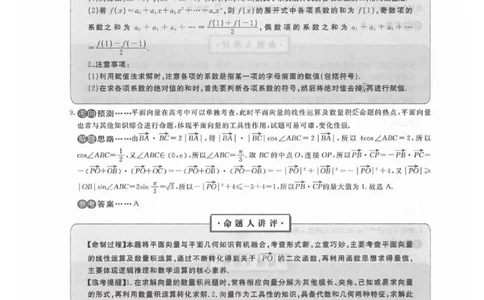 (2)若f(x)=a₁+a₂x+a₃x²+⋯+aₙxⁿ,则f(x)的展开式中各项系数的和为f(1),奇数项的
系数之和为a₁+a₃+a₅+⋯=f(1)+f(-1)/2,偶数项的系数之和为a₂+a₄+a₆+⋯
=f(1)-f(-1)/2.
2.注意事项:
(1)利用赋值法求解时,注意各项的系数是指某一项的字母前面的数值(包括符号).
(2)在求各项系数的绝对值的和时,首先要判断各项系数的符号,然后将绝对值去掉,再进行赋值.
9.考向预测……平面向量在高考中可以单独考查,此时平面向量的线性运算及数量积是命题的热点,平面向量
也常与其他知识综合进行命题,体现平面向量的工具性作用,试题可易可难,变化性强.
解题思路……由BA→·BC→=2|BA→|,得|BA→|·|BC→|cos∠ABC=2|BA→|,所以4cos∠ABC=2,所以
cos∠ABC=1/2,又∠ABC∈(0,π),所以∠ABC=π/3.取BC的中点O,连接OP,所以PB→·CP→=-PB→·PC→=
-(PO→+OB→)·(PO→+OC→)=-(PO→+OB→)·(PO→-OB→)=-|PO→|²+|OB→|²=-|PO→|²+4,又|PO→|≥
|OB|sin∠ABC=2sinπ/3=√3,所以-|PO→|²+4≤-3+4=1,所以PB→·CP→的最大值为1.故选A.
参考答案……A
·命题人讲评·
【命制过程】本题将平面向量与平面几何知识有机融合,考查形式新,立意巧妙,主要考查平面向量
的线性运算及数量积运算,通过不断转化得到关于|PO→|的二次函数,再利用函数思想求得最值,
主要体现逻辑推理和数学运算的核心素养.
【临考提醒】1.在求解向量的数量积问题时,常将相应向量分解为其他模长、夹角、已知或易求向量
的形式,再利用数量积运算转化求解.2.向量作为工具性的知识,具备代数和几何两种特征,求解此